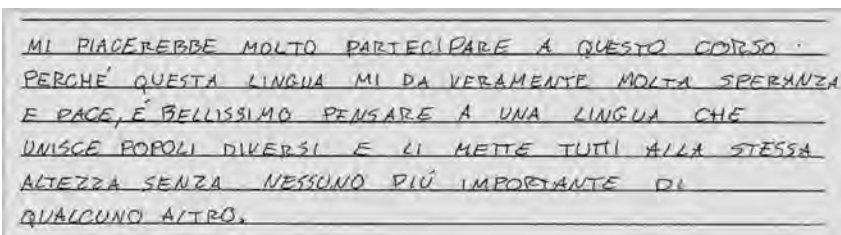 MI PIACEREBBE MOLTO PARTECIPARE A QUESTO CORSO.
PERCHÉ QUESTA LINGUA MI DA VERAMENTE MOLTA SPERANZA
E PACE, É BELLISSIMO PENSARE A UNA LINGUA CHE
UNISCE POPOLI DIVERSI E LI METTE TUTTI ALLA STESSA
ALTEZZA SENZA NESSUNO PIÚ IMPORTANTE DI
QUALCUNO ALTRO.